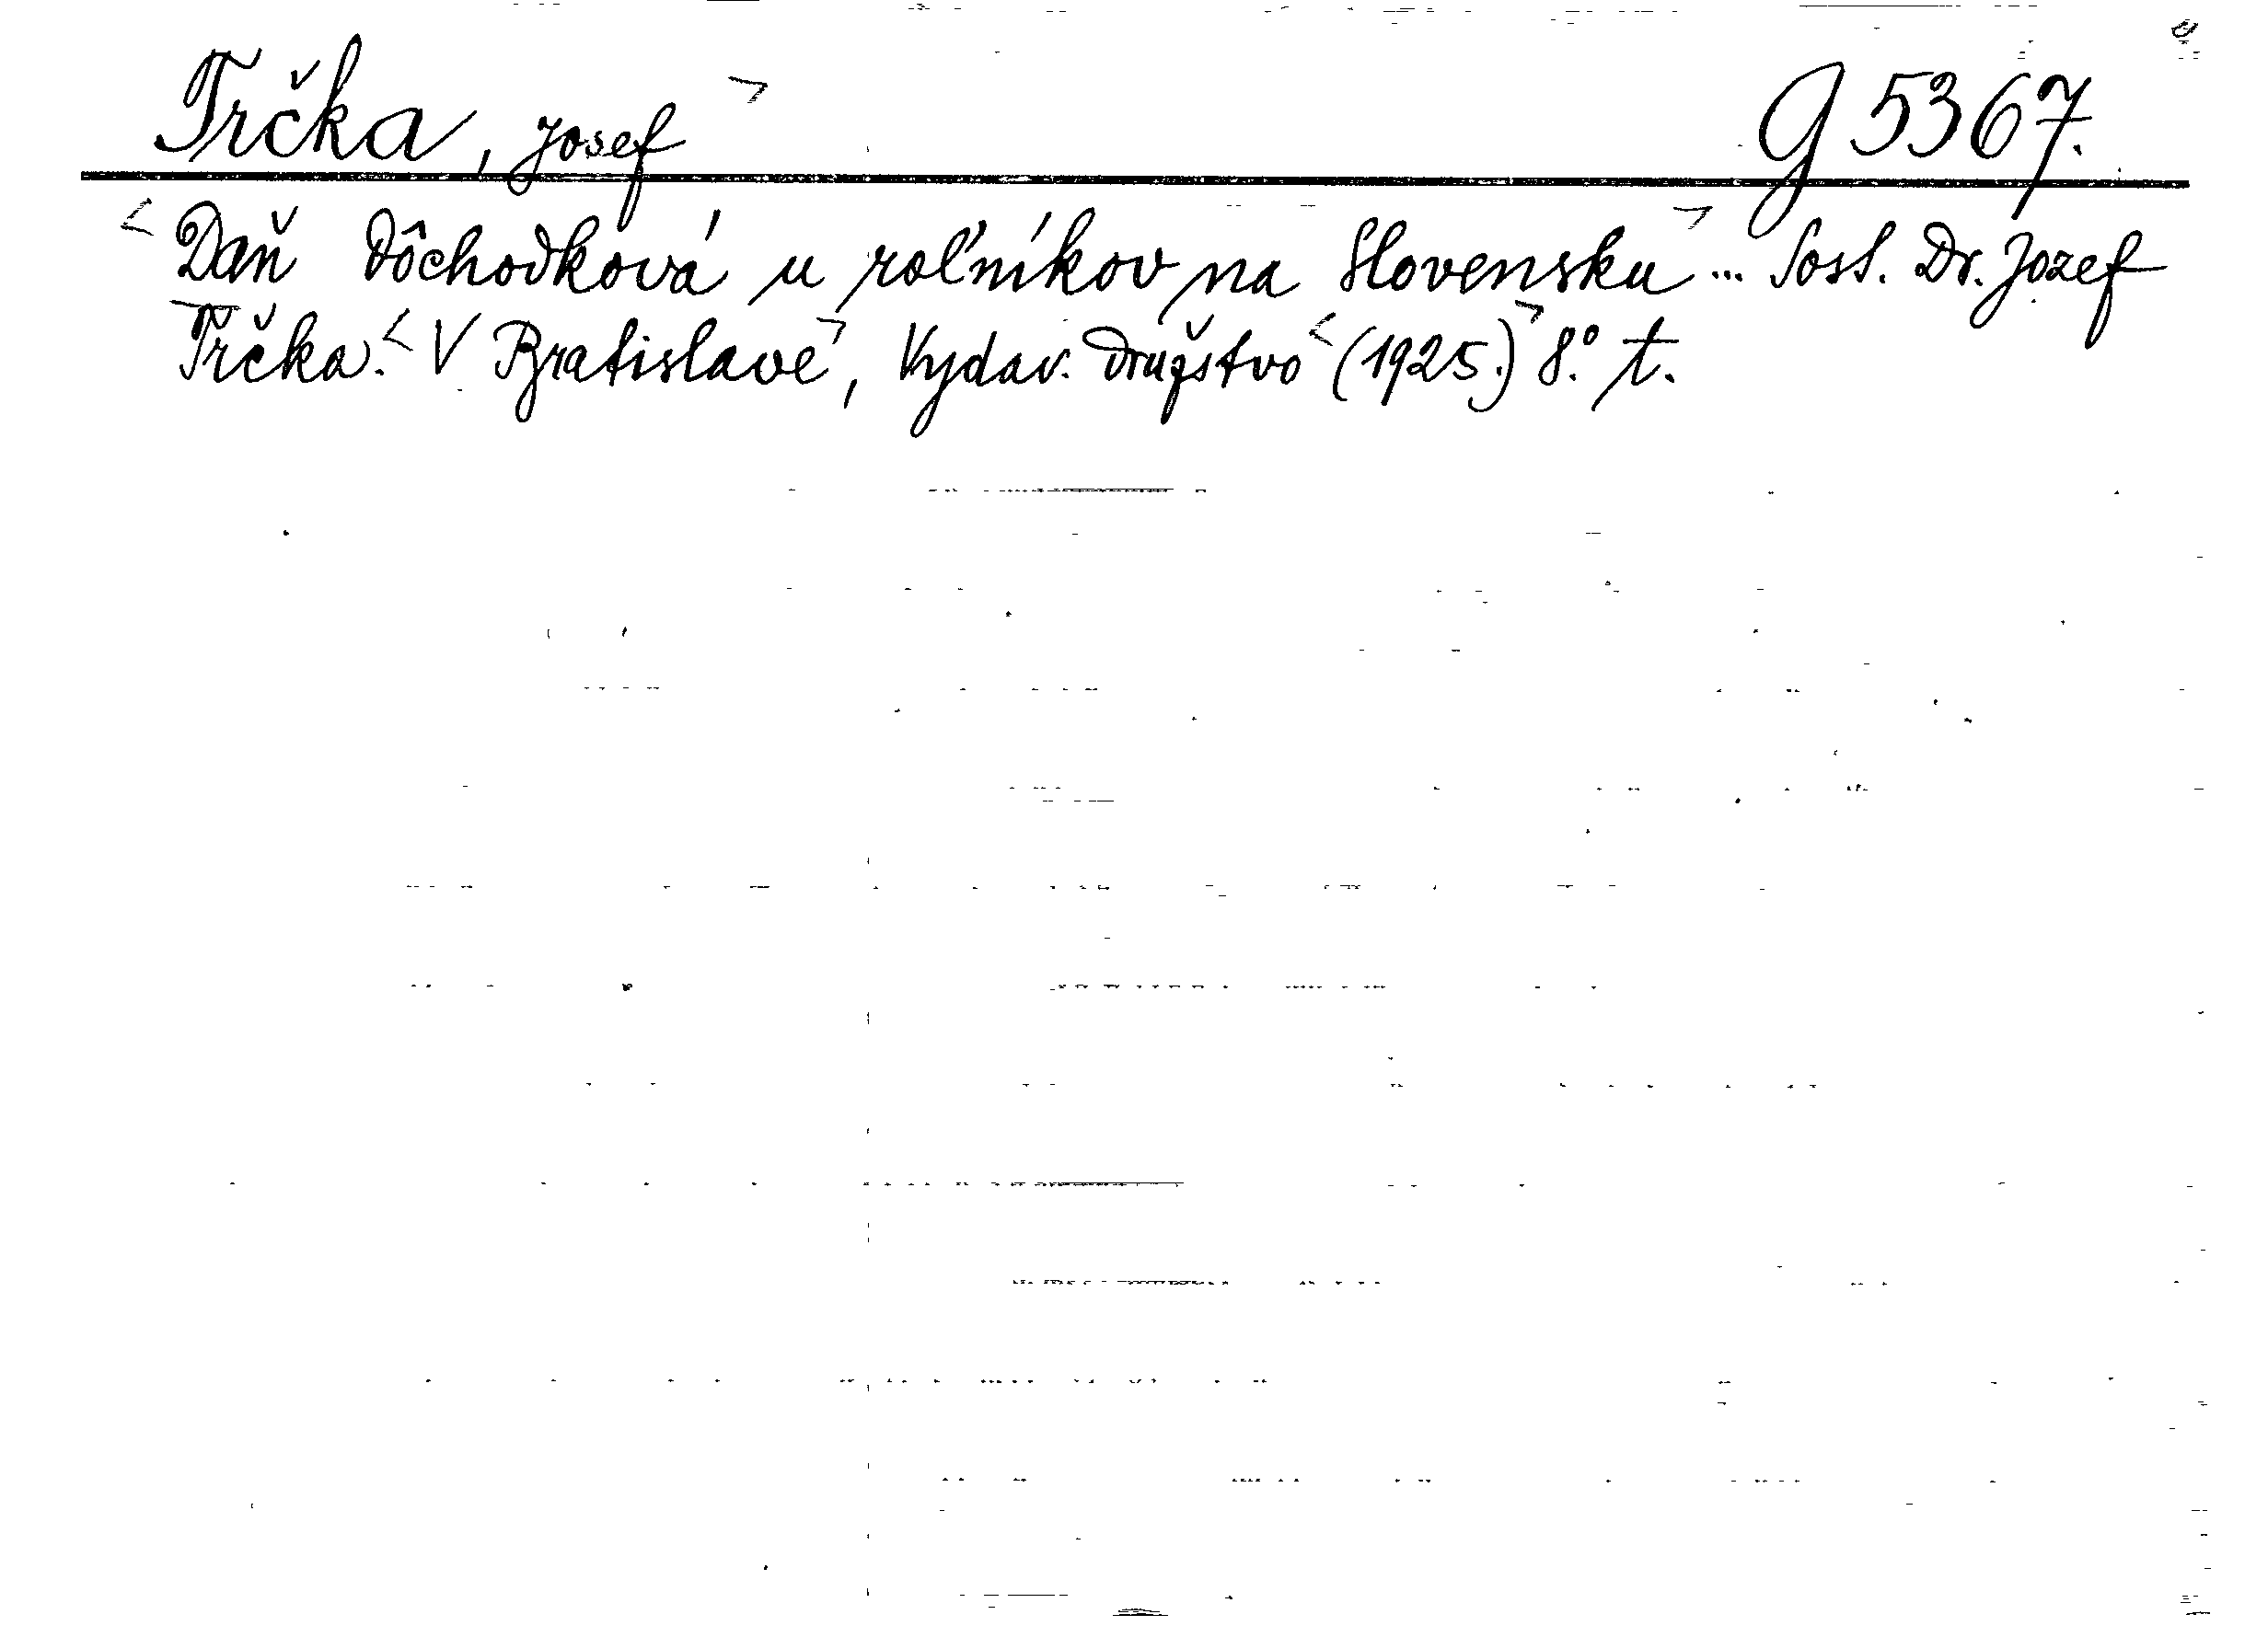 Trčka, Josef G 5367.
Daň dôchodková u roľníkov na Slovensku ... Sost. Dr. Jozef
Trčka. V Bratislave, Vydav. družstvo (1925.) 8° t.